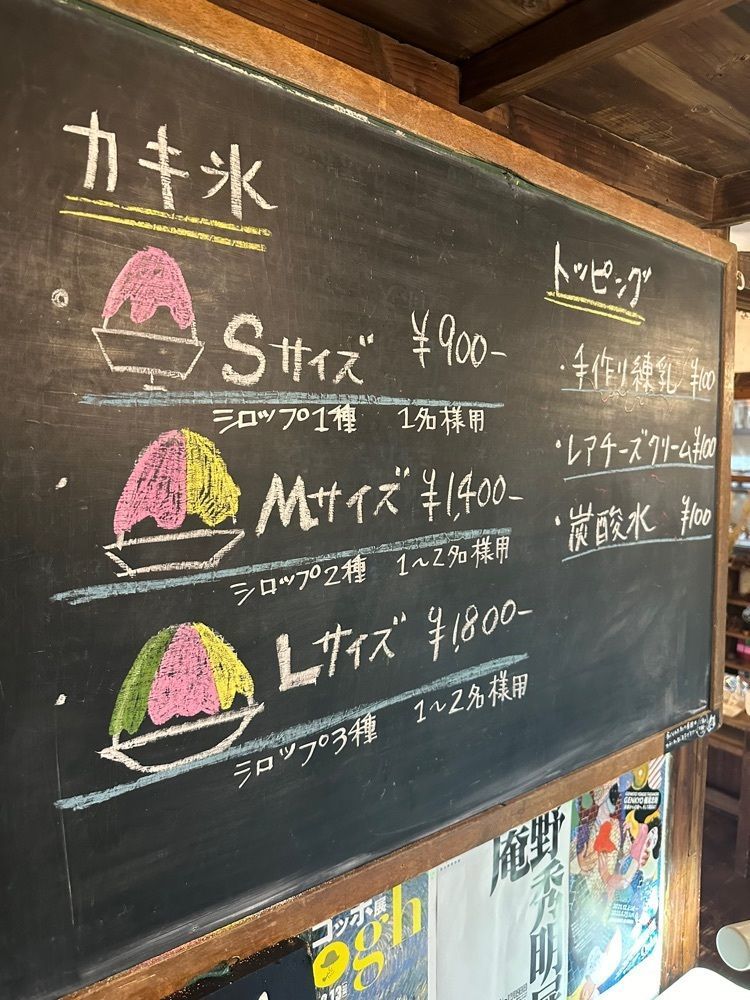 カキ氷
Sサイズ ¥900-
シロップ1種 1名様用
Mサイズ ¥1,400-
シロップ2種 1〜2名様用
Lサイズ ¥1,800-
シロップ3種 1〜2名様用
トッピング
・手作り練乳 ¥100
・レアチーズクリーム ¥100
・炭酸水 ¥100
コッホ展
gh
野秀明展
庵
GENKYO